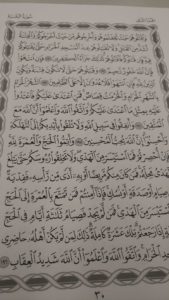 الجزء الثاني سورة البقرة
وَاقْتُلُوهُمْ حَيْثُ ثَقِفْتُمُوهُمْ وَأَخْرِجُوهُم مِّنْ حَيْثُ أَخْرَجُوكُمْ وَالْفِتْنَةُ
أَشَدُّ مِنَ الْقَتْلِ وَلَا تُقَاتِلُوهُمْ عِندَ الْمَسْجِدِ الْحَرَامِ حَتَّىٰ يُقَاتِلُوكُمْ
فِيهِ فَإِن قَاتَلُوكُمْ فَاقْتُلُوهُمْ كَذَٰلِكَ جَزَاءُ الْكَافِرِينَ ١٩١ فَإِنِ انتَهَوْا
فَإِنَّ اللَّهَ غَفُورٌ رَّحِيمٌ ١٩٢ وَقَاتِلُوهُمْ حَتَّىٰ لَا تَكُونَ فِتْنَةٌ وَيَكُونَ
الدِّينُ لِلَّهِ فَإِنِ انتَهَوْا فَلَا عُدْوَانَ إِلَّا عَلَى الظَّالِمِينَ ١٩٣ الشَّهْرُ الْحَرَامُ
بِالشَّهْرِ الْحَرَامِ وَالْحُرُمَاتُ قِصَاصٌ فَمَنِ اعْتَدَىٰ عَلَيْكُمْ فَاعْتَدُوا
عَلَيْهِ بِمِثْلِ مَا اعْتَدَىٰ عَلَيْكُمْ وَاتَّقُوا اللَّهَ وَاعْلَمُوا أَنَّ اللَّهَ مَعَ
الْمُتَّقِينَ ١٩٤ وَأَنفِقُوا فِي سَبِيلِ اللَّهِ وَلَا تُلْقُوا بِأَيْدِيكُمْ إِلَى التَّهْلُكَةِ
وَأَحْسِنُوا إِنَّ اللَّهَ يُحِبُّ الْمُحْسِنِينَ ١٩٥ وَأَتِمُّوا الْحَجَّ وَالْعُمْرَةَ لِلَّهِ
فَإِنْ أُحْصِرْتُمْ فَمَا اسْتَيْسَرَ مِنَ الْهَدْيِ وَلَا تَحْلِقُوا رُءُوسَكُمْ حَتَّىٰ يَبْلُغَ
الْهَدْيُ مَحِلَّهُ فَمَن كَانَ مِنكُم مَّرِيضًا أَوْ بِهِ أَذًى مِّن رَّأْسِهِ فَفِدْيَةٌ مِّن
صِيَامٍ أَوْ صَدَقَةٍ أَوْ نُسُكٍ فَإِذَا أَمِنتُمْ فَمَن تَمَتَّعَ بِالْعُمْرَةِ إِلَى الْحَجِّ
اسْتَيْسَرَ مِنَ الْهَدْيِ فَمَن لَّمْ يَجِدْ فَصِيَامُ ثَلَاثَةِ أَيَّامٍ فِي الْحَجِّ
إِذَا رَجَعْتُمْ تِلْكَ عَشَرَةٌ كَامِلَةٌ ذَٰلِكَ لِمَن لَّمْ يَكُنْ أَهْلُهُ حَاضِرِي
الْحَرَامِ وَاتَّقُوا اللَّهَ وَاعْلَمُوا أَنَّ اللَّهَ شَدِيدُ الْعِقَابِ ١٩٦
٣٠